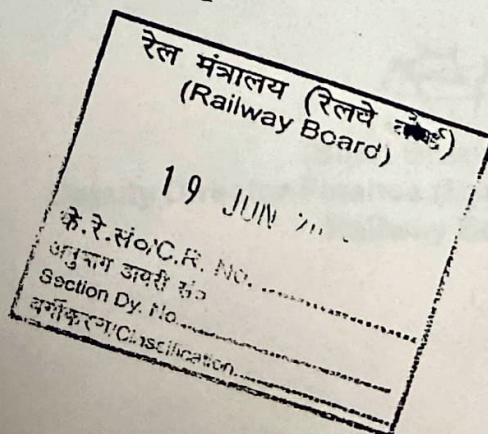 रेल मंत्रालय (रेलवे बोर्ड)
(Railway Board)
19 JUN
के.रे.सं०/C.R. No. ....................
अनुभाग डायरी सं०
Section Dy. No. ....................
वर्गीकरण/Classification....................